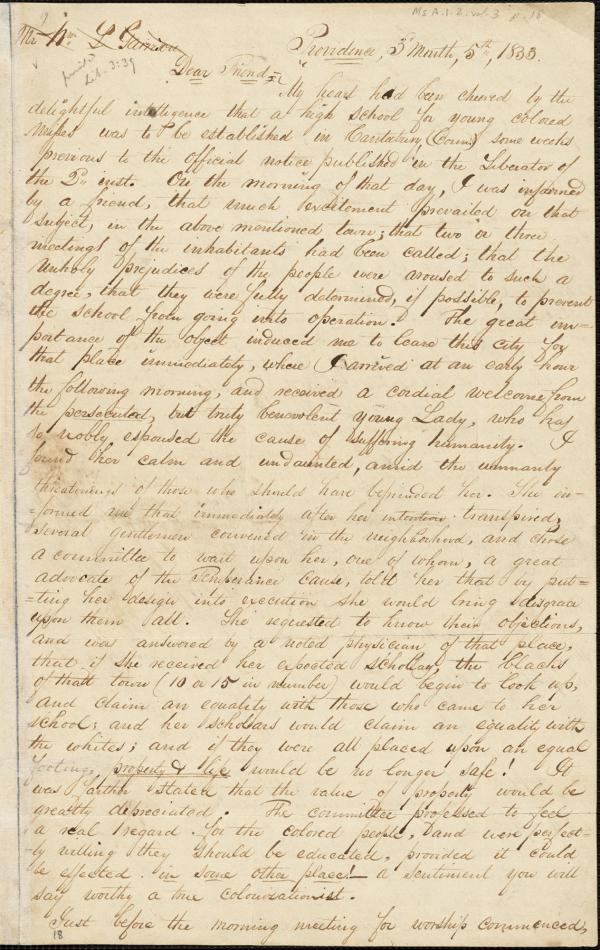 Ms. A. 1. 2. vol. 3 p. 18
Mr Wm. L Garrison
Providence, 3d Month, 5th, 1833.
print'd
Lib. 3:39
Dear Friend,
My heart had been cheered by the
delightful intelligence that a high school for young colored
Misses was to be established in Cantarbury (Conn) some weeks
previous to the official notice published in the Liberator of
the 2" inst. On the morning of that day, I was informed
by a friend, that much excitement prevailed on that
subject, in the above mentioned town; that two or three
meetings of the inhabitants had been called; that the
unholy prejudices of the people were aroused to such a
degree, that they were fully determined, if possible, to prevent
the school from going into operation. The great im=
portance of the object induced me to leave this city for
that place immediately, where I arrived at an early hour
the following morning, and received a cordial welcome from
the persecuted, but truly benevolent young Lady, who has
so nobly espoused the cause of suffering humanity. I
found her calm and undaunted, amid the unmanly
threatenings of those who should have befriended her. She in-
=formed me that immediately after her intention transpired,
several gentlemen convened in the neighborhood, and chose
a committee to wait upon her, one of whom, a great
advocate of the Temperance cause, told her that by put=
=ting her design into execution she would bring disgrace
upon them all. She requested to know their objections,
and was answered by a noted physician of that place,
that if she received her expected scholars, the blacks
of that town (10 or 15 in number) would begin to look up,
and claim an equality with those who came to her
school; and her scholars would claim an equality with
the whites; and if they were all placed upon an equal
footing, property & life would be no longer safe! It
was farther stated that the value of property would be
greatly depreciated. The committee professed to feel
a real regard for the colored people, and were perfect-
-ly willing they should be educated, provided it could
be effected in some other place!— a sentiment you will
say worthy a true colonizationist.
Just before the morning meeting for worship commenced,
18